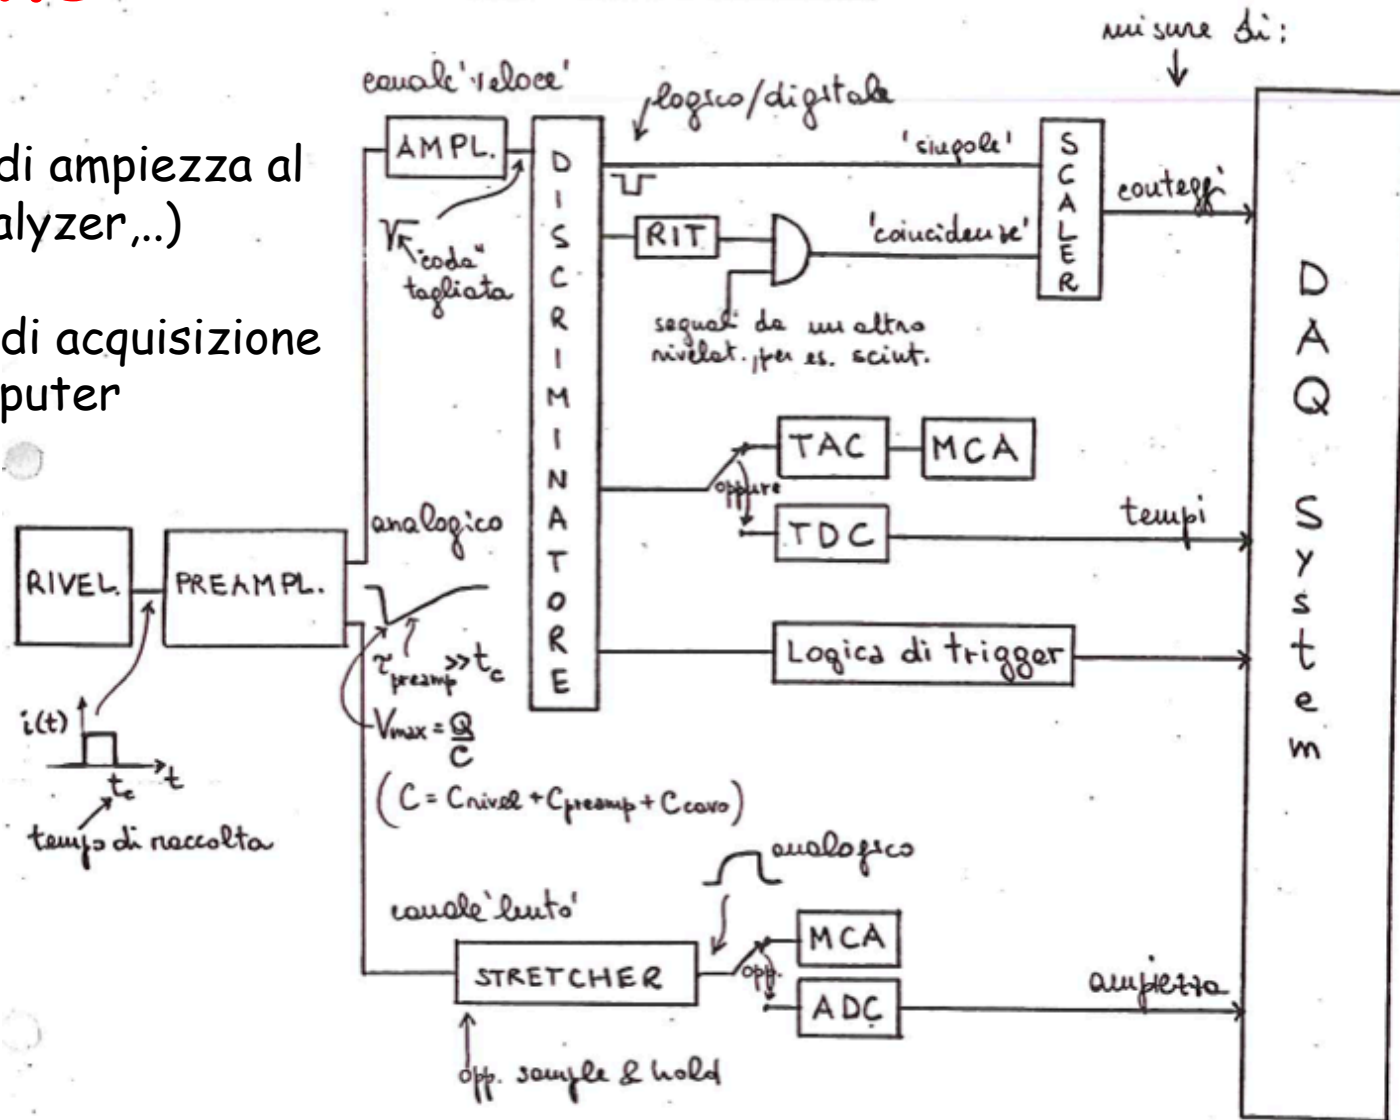 di ampiezza al
alyzer,..)
di acquisizione
puter
misure di:
canale 'veloce'
logico/digitale
AMPL.
"coda"
tagliata
DISCRIMINATORE
'singole'
RIT
'coincidenze'
segnali da un altro
rivelat., per es. scint.
SCALER
conteggi
DAQ System
TAC
MCA
oppure
TDC
tempi
Logica di trigger
RIVEL.
PREAMPL.
analogico
τpreamp >> tc
Vmax = Q/C
(C = Crivel + Cpreamp + Ccavo)
i(t)
tc
t
tempo di raccolta
canale 'lento'
analogico
STRETCHER
opp.
MCA
ADC
ampiezza
opp. sample & hold